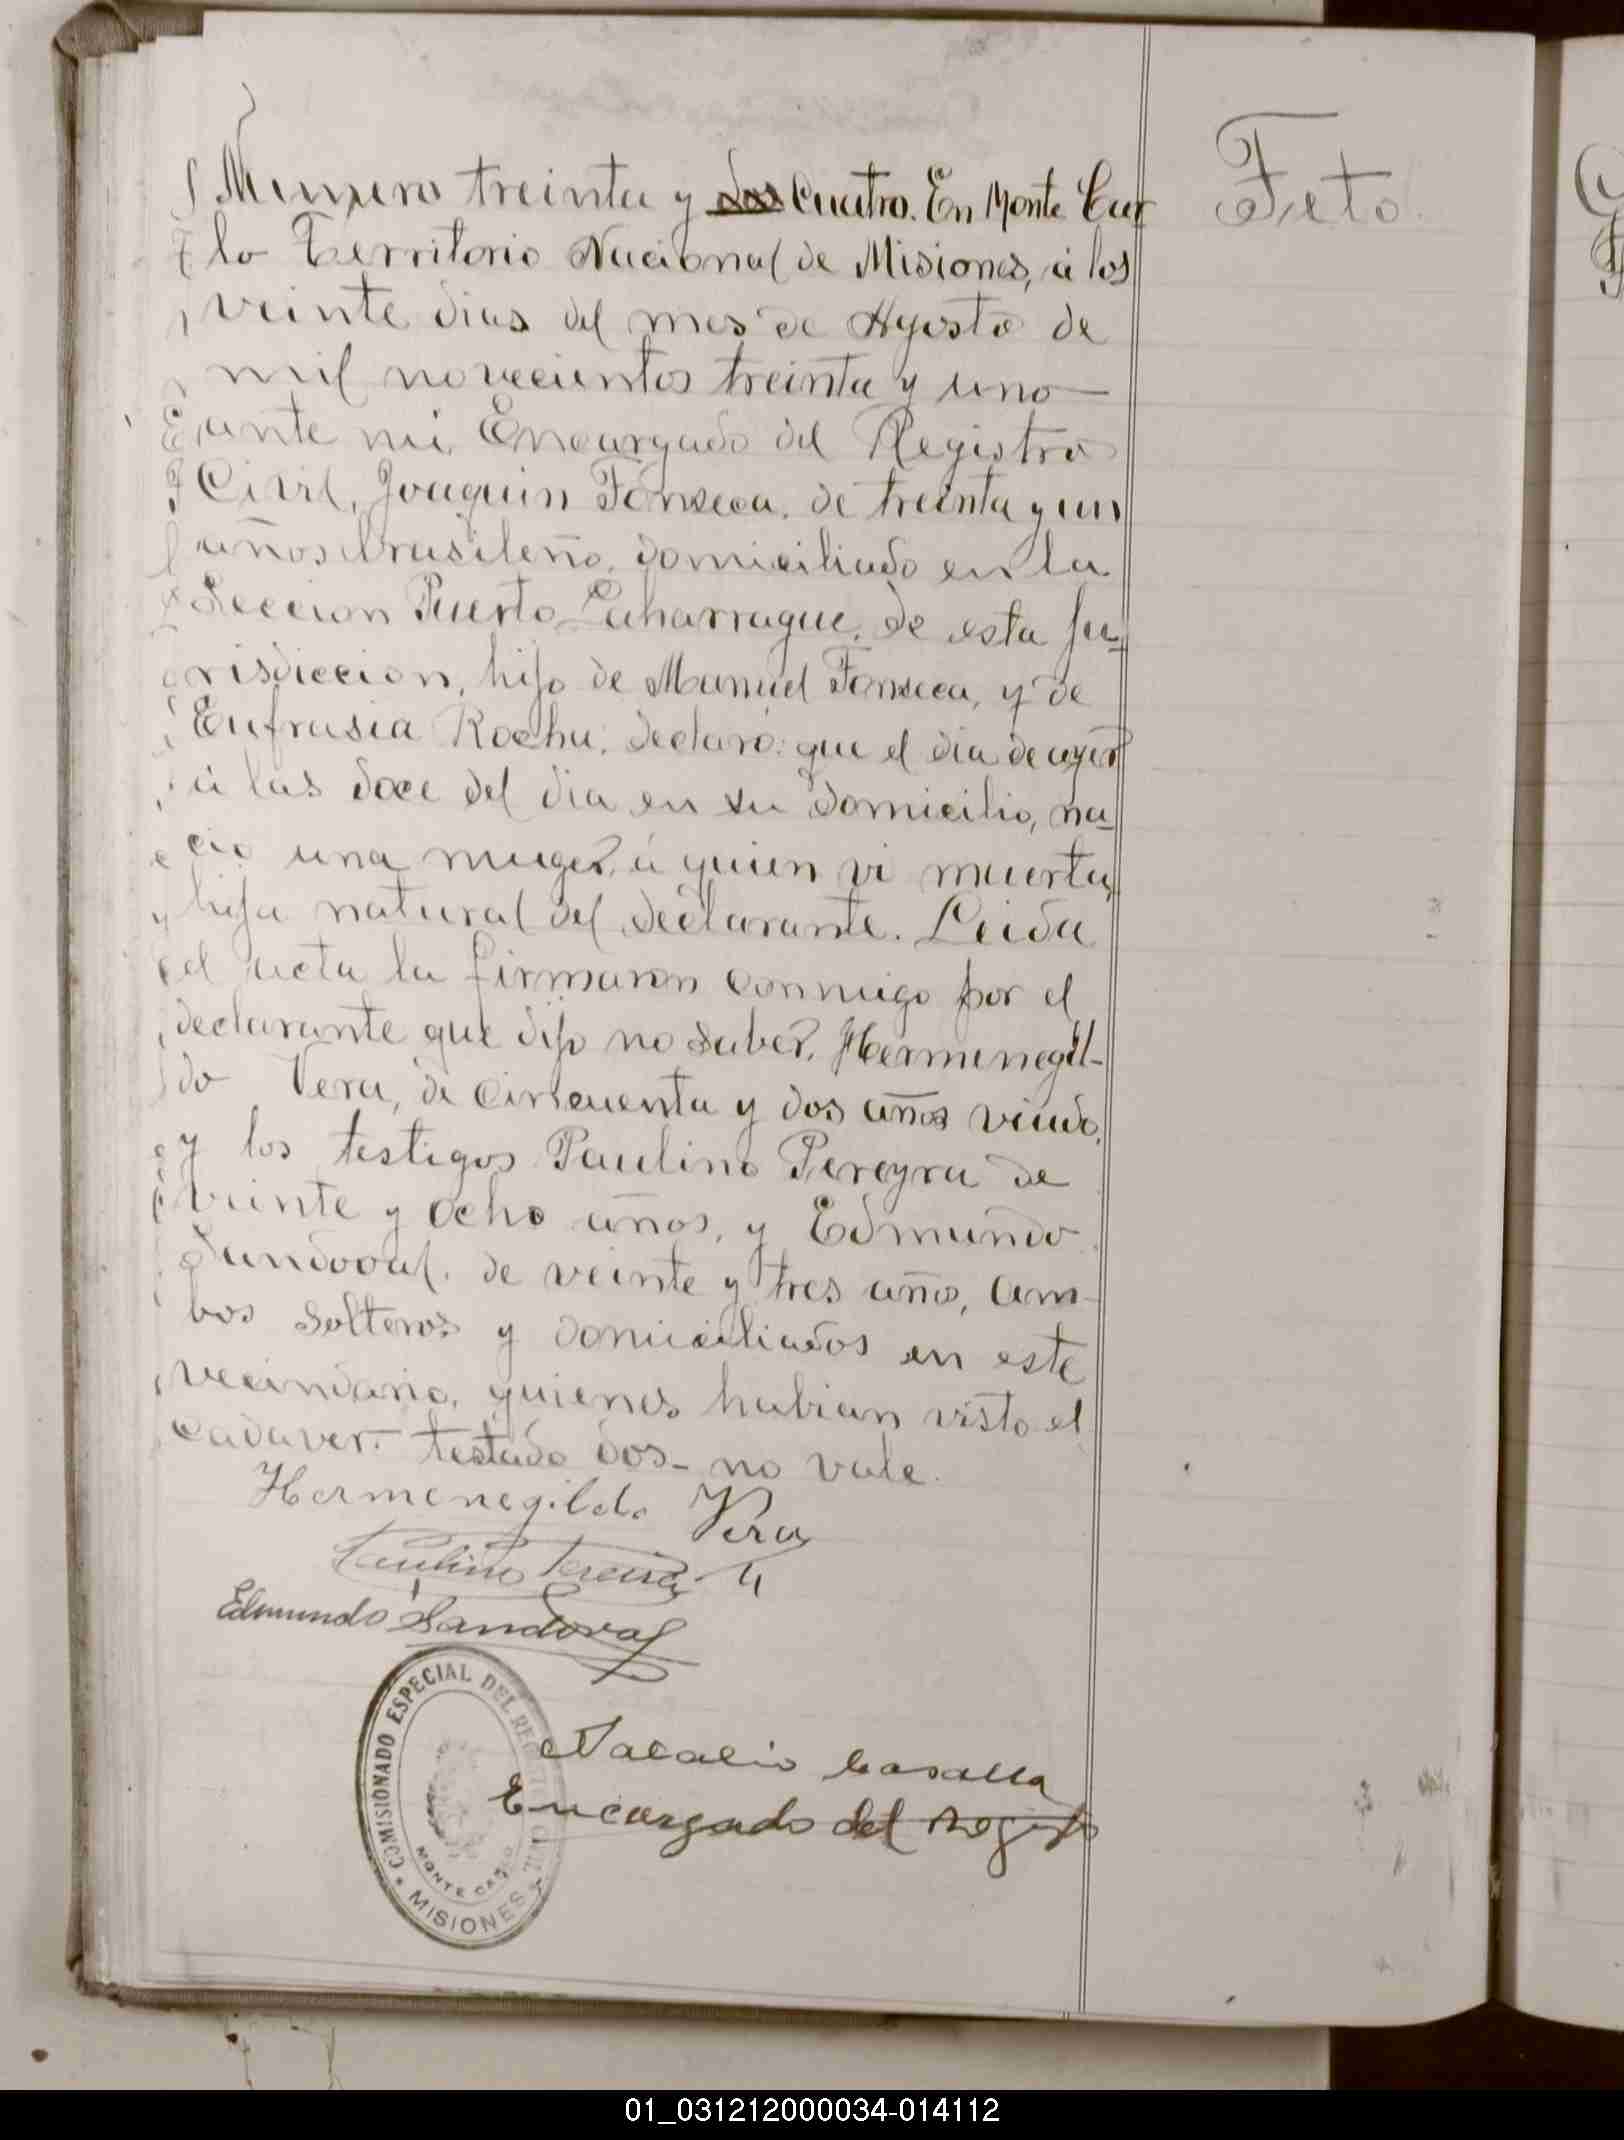 Feto.
Numero treinta y dos cuatro. En Monte Car
lo Territorio Nacional de Misiones, á los
veinte dias del mes de Agosto de
mil novecientos treinta y uno
ante mi Encargado del Registro
Civil, Joaquin Fonseca, de treinta y un
años brasileño, domiciliado en la
Seccion Puerto Laharrague, de esta Ju-
risdiccion, hijo de Manuel Fonseca, y de
Eufrasia Rocha; declaró: que el dia de ayer
á las doce del dia en su domicilio, na-
cio una muger, á quien vi muerta,
hija natural del declarante. Leida
el acta la firmaron conmigo por el
declarante que dijo no saber, Hermenegil-
do Vera, de cincuenta y dos años viudo,
y los testigos Paulino Pereyra de
veinte y ocho años, y Edmundo
Sandoval, de veinte y tres año, am-
bos solteros y domiciliados en este
vecindario, quienes habian visto el
cadaver. testado dos- no vale.
Hermenegildo Vera
Paulino Pereira
Edmundo Sandoval
COMISIONADO ESPECIAL DEL REGISTRO CIVIL
MONTE CARLO
MISIONES
Natalio Casalla
Encargado del Registro
01_031212000034-014112